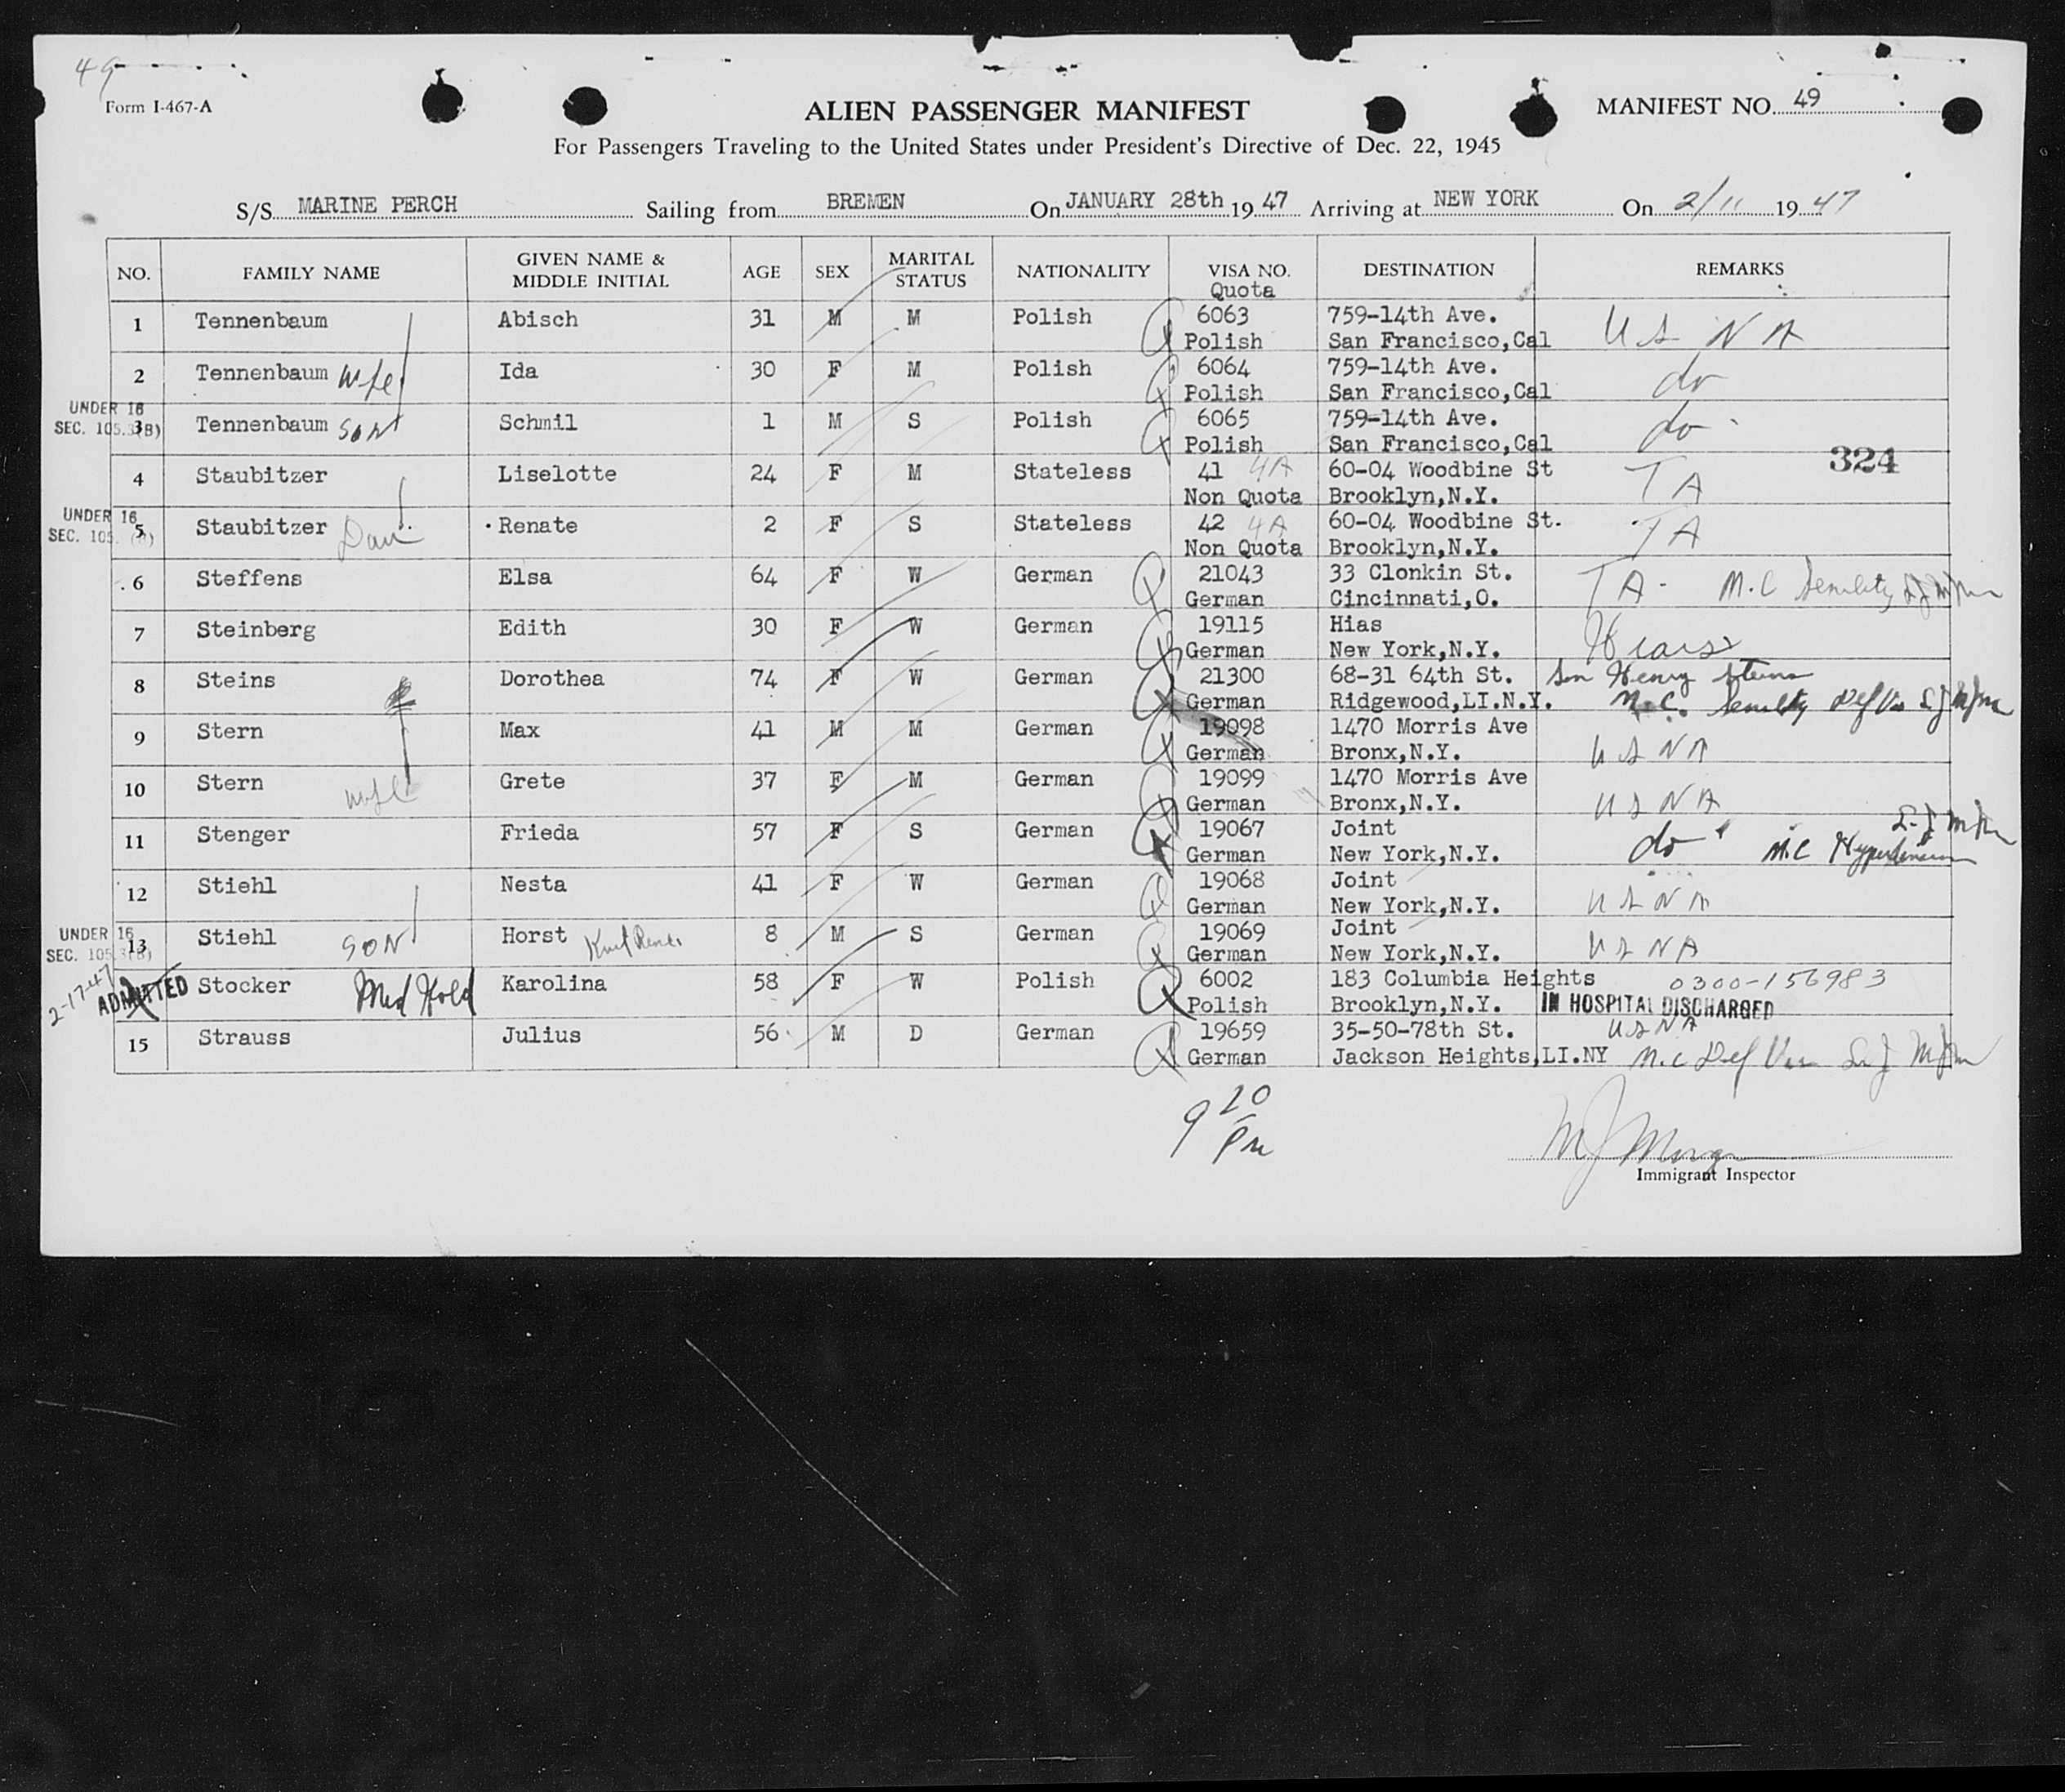 49
Form I-467-A
ALIEN PASSENGER MANIFEST
MANIFEST NO. 49
For Passengers Traveling to the United States under President's Directive of Dec. 22, 1945
S/S MARINE PERCH Sailing from BREMEN On JANUARY 28th 19 47 Arriving at NEW YORK On 2/11 19 47
NO. FAMILY NAME GIVEN NAME & MIDDLE INITIAL AGE SEX MARITAL STATUS NATIONALITY VISA NO. Quota DESTINATION REMARKS
1 Tennenbaum Abisch 31 M M Polish 6063 759-14th Ave. U S N A
Q Polish San Francisco,Cal
2 Tennenbaum wife Ida 30 F M Polish 6064 759-14th Ave. do
Q Polish San Francisco,Cal
UNDER 16
SEC. 105.3(B)
3 Tennenbaum SON Schmil 1 M S Polish 6065 759-14th Ave. do
Q Polish San Francisco,Cal
324
4 Staubitzer Liselotte 24 F M Stateless 41 4A 60-04 Woodbine St T A
Non Quota Brooklyn,N.Y.
UNDER 16
SEC. 105.
5 Staubitzer Dau Renate 2 F S Stateless 42 4A 60-04 Woodbine St. T A
Non Quota Brooklyn,N.Y.
6 Steffens Elsa 64 F W German 21043 33 Clonkin St. T A - M.C Senility
Q German Cincinnati,O.
7 Steinberg Edith 30 F W German 19115 Hias Hias
Q German New York,N.Y.
8 Steins Dorothea 74 F W German 21300 68-31 64th St. Son Henry Steins
Q German Ridgewood,LI.N.Y. M.C. Senility Def Vis
9 Stern Max 41 M M German 19098 1470 Morris Ave U S N A
Q German Bronx,N.Y.
10 Stern wife Grete 37 F M German 19099 1470 Morris Ave U S N A
Q German Bronx,N.Y.
11 Stenger Frieda 57 F S German 19067 Joint do M.C Hypertension
Q German New York,N.Y.
12 Stiehl Nesta 41 F W German 19068 Joint U S N A
Q German New York,N.Y.
UNDER 16
SEC. 105.3(B)
13 Stiehl SON Horst 8 M S German 19069 Joint U S N A
Q German New York,N.Y.
2-17-47
ADMITTED
Stocker Med Hold Karolina 58 F W Polish 6002 183 Columbia Heights 0300-156983
Q Polish Brooklyn,N.Y. IN HOSPITAL DISCHARGED
15 Strauss Julius 56 M D German 19659 35-50-78th St. U S N A
Q German Jackson Heights,LI.NY M.C Def Vis
9 20 Pm
Immigrant Inspector